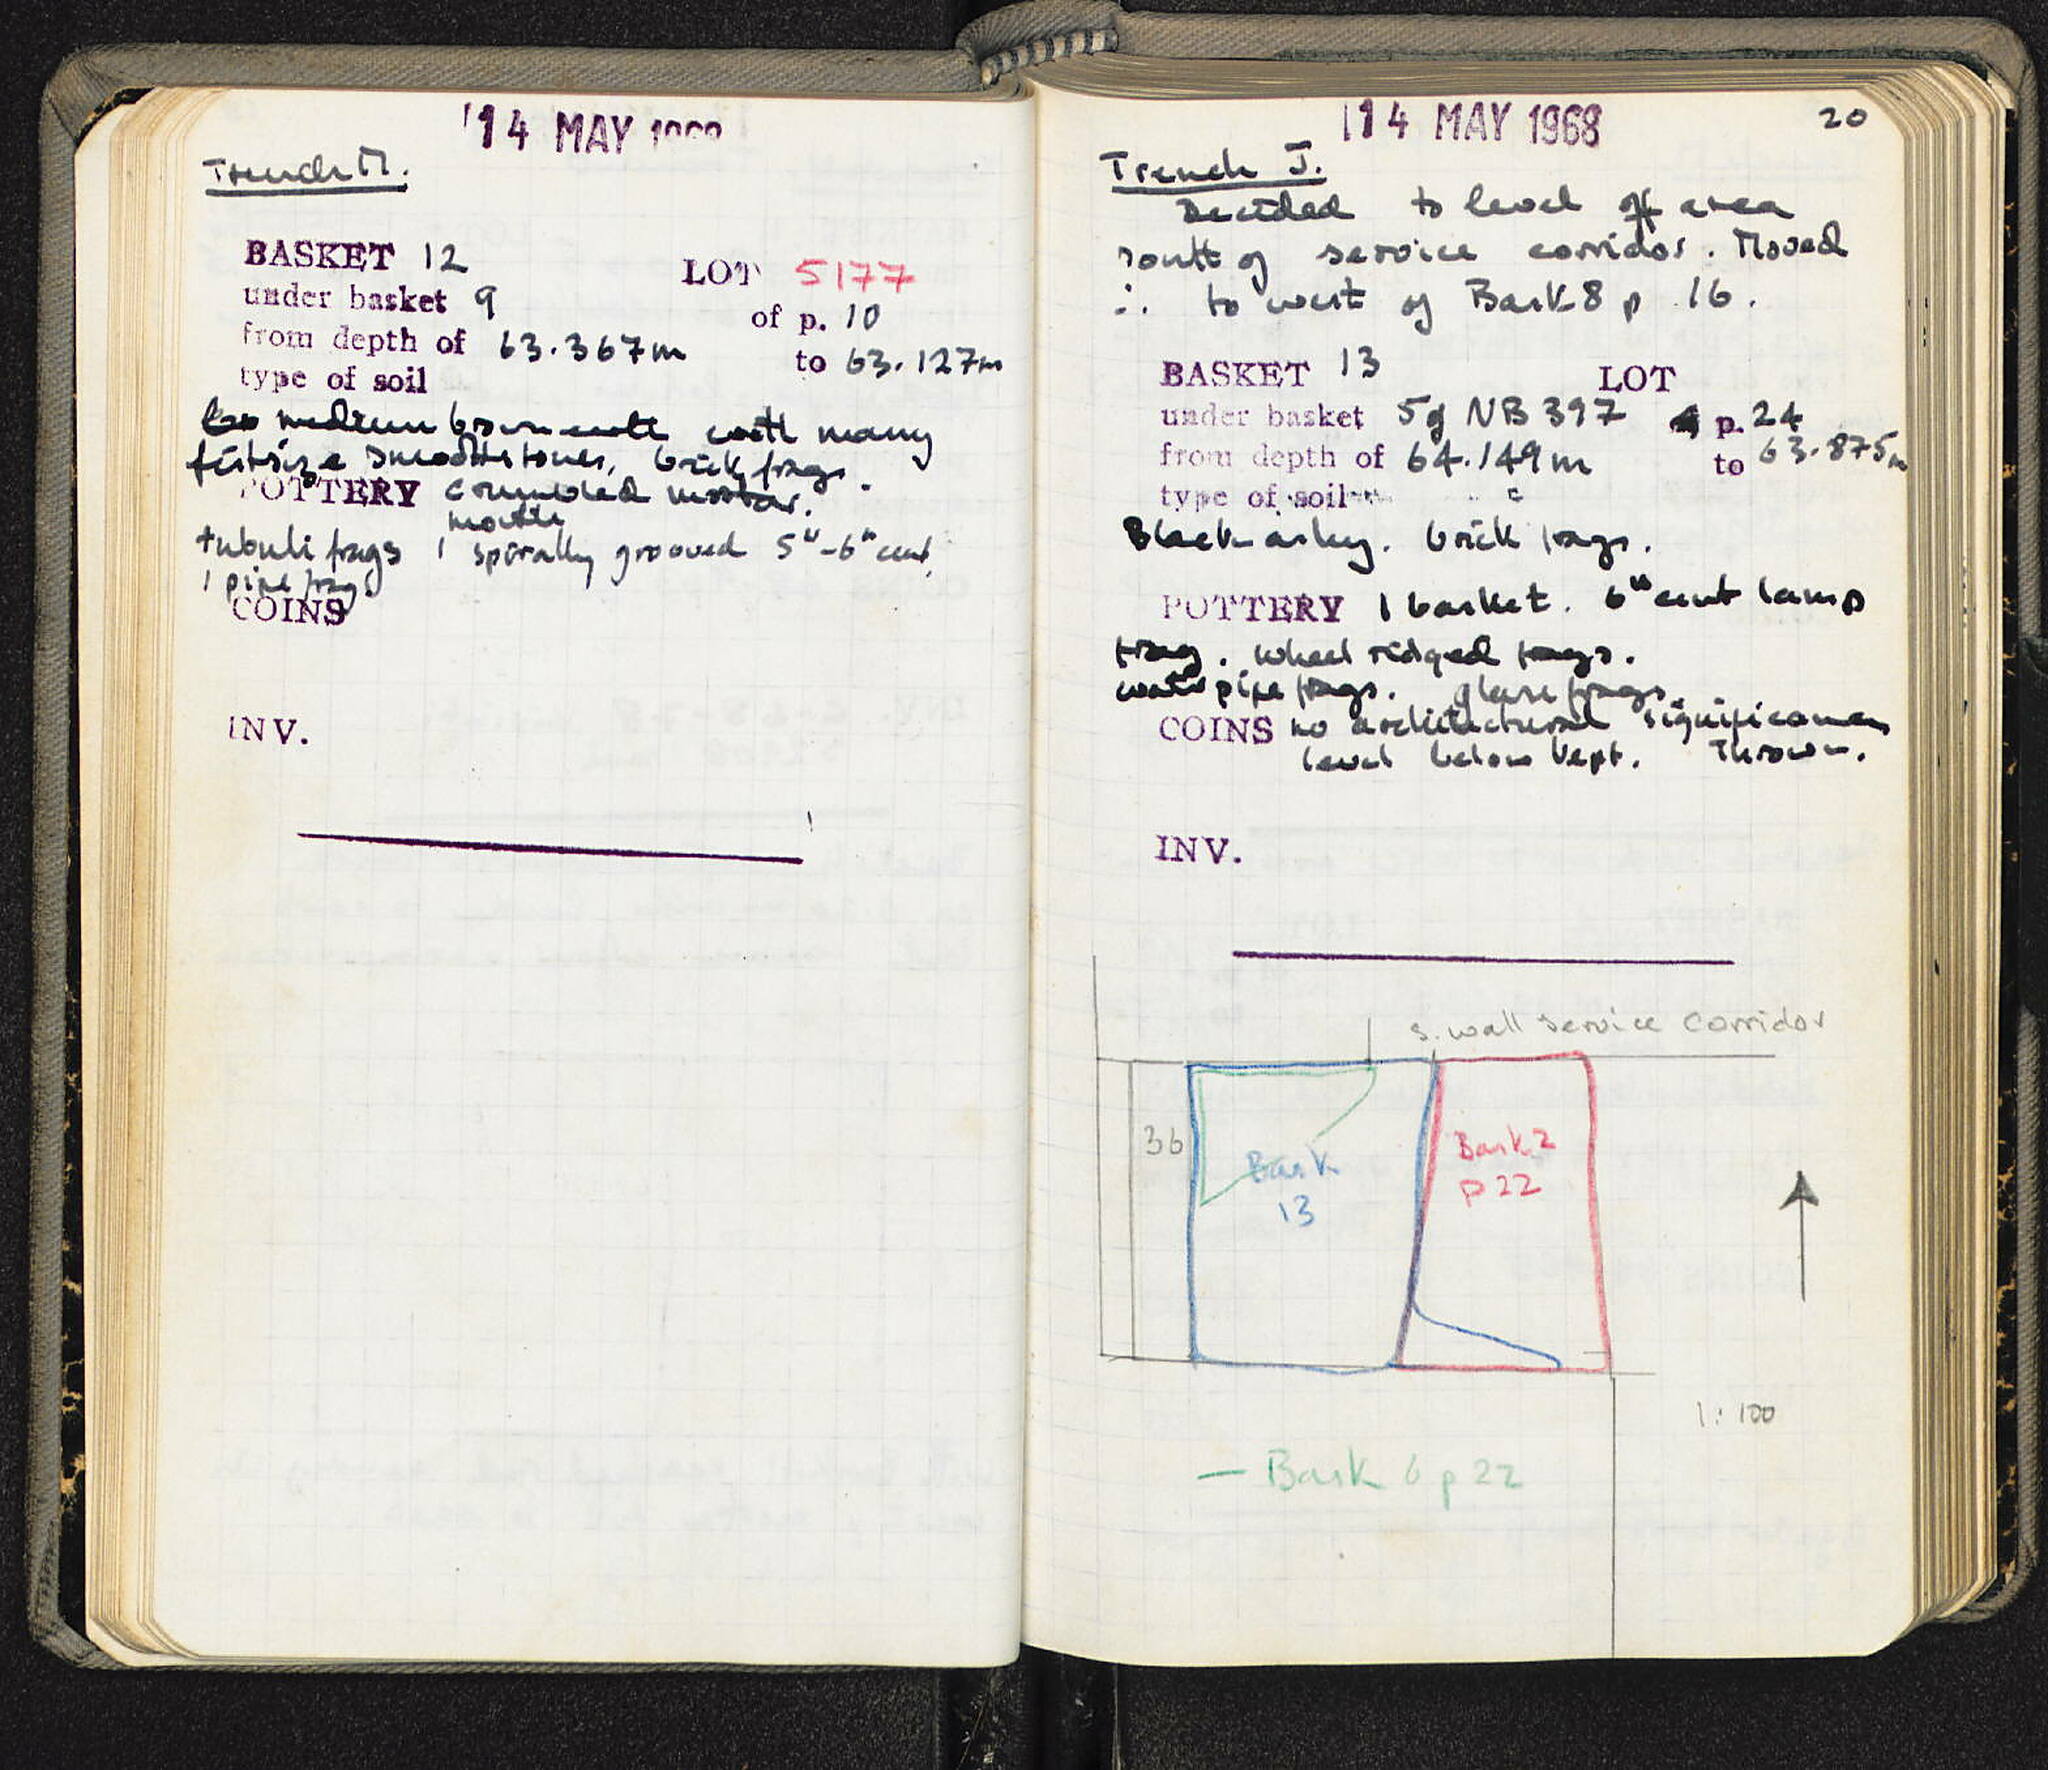 14 MAY 1968
Trench M.
BASKET 12 LOT 5177
under basket 9 of p. 10
from depth of 63.367m to 63.127m
type of soil
medium brown earth with many
fistsize smooth stones, brick frags.
POTTERY crumbled mortar.
mouth
tubuli frags 1 spirally grooved 5th-6th cent.
1 pipe frag.
COINS
INV.
14 MAY 1968 20
Trench J.
Decided to level off area
south of service corridor. Moved
∴ to west of Bask 8 p 16.
BASKET 13 LOT
under basket 5 of NB 397 p. 24
from depth of 64.149m to 63.875m
type of soil
Black ashy. brick frags.
POTTERY 1 basket. 6th cent lamp
frag. wheel ridged frags.
water pipe frags. glass frags.
COINS no architectural significance
level below kept. Thrown.
INV.
s. wall service corridor
36
Bask 2
p 22
Bask
13
1:100
— Bask 6 p 22